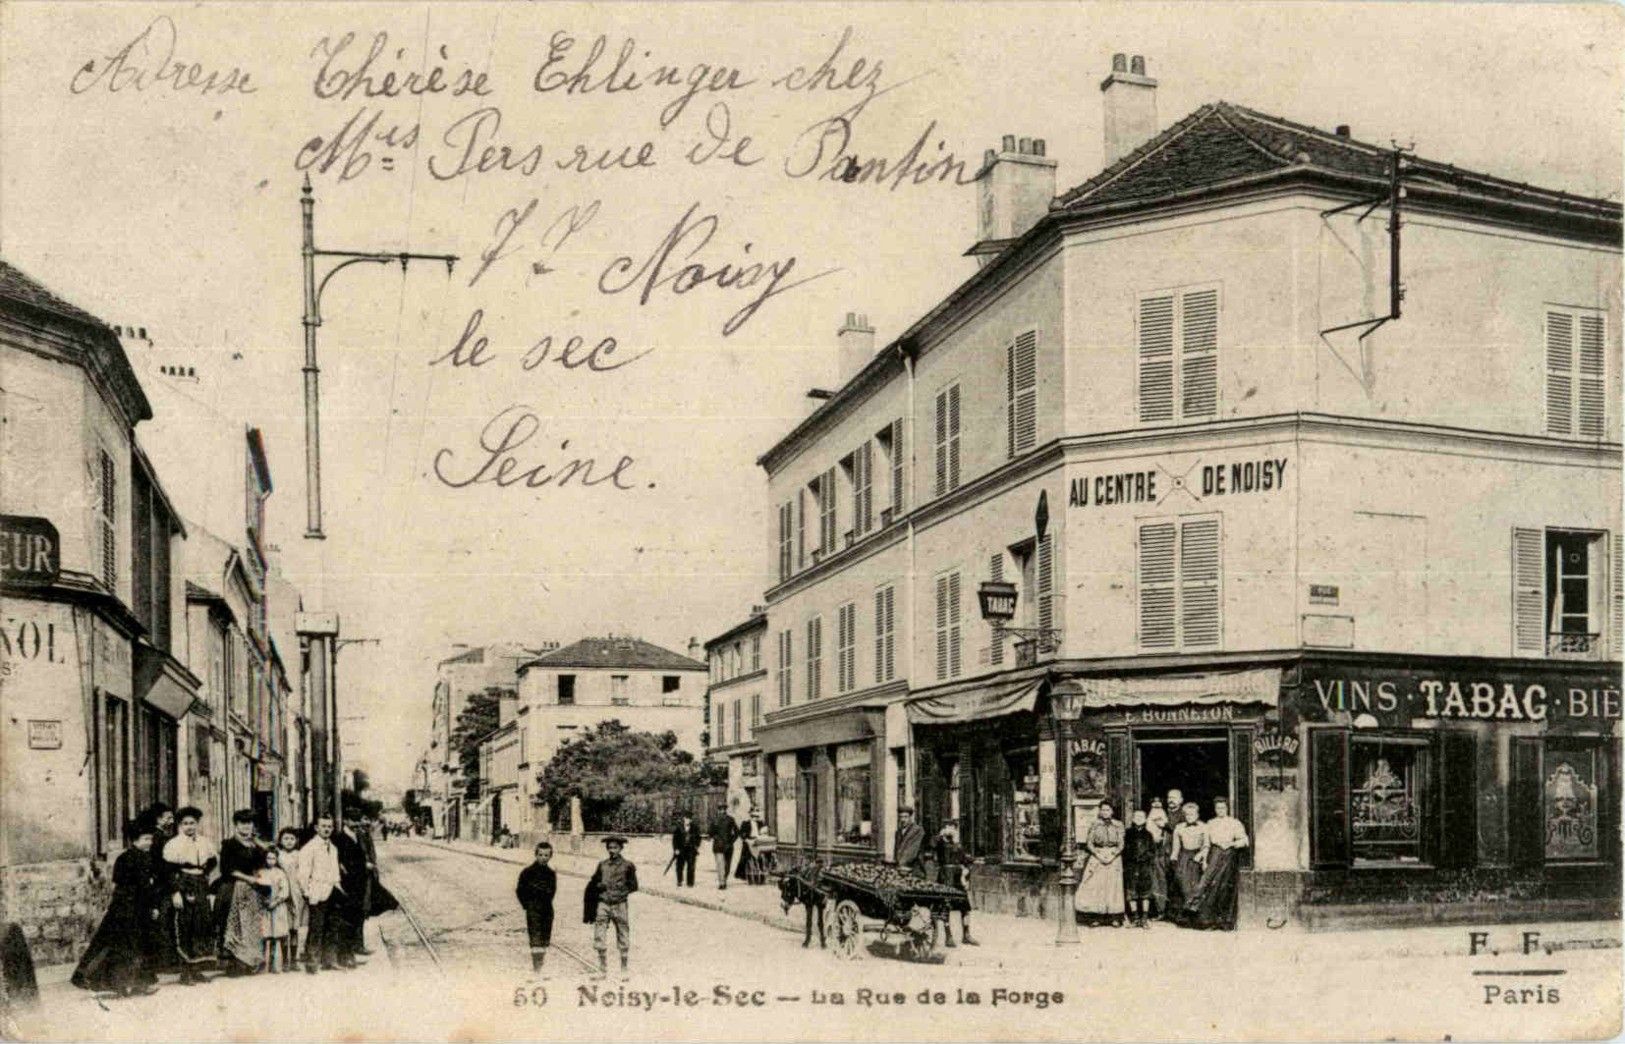 Adresse Thérèse Ehlinger chez
Mᵐᵉˢ Pers rue de Pantin
Noisy
le sec
Seine.
AU CENTRE DE NOISY
EUR
NOL
TABAC
VINS · TABAC · BIÈ
E. BONNETON
TABAC
BILLARD
F. F.
Paris
50 Noisy-le-Sec — La Rue de la Forge